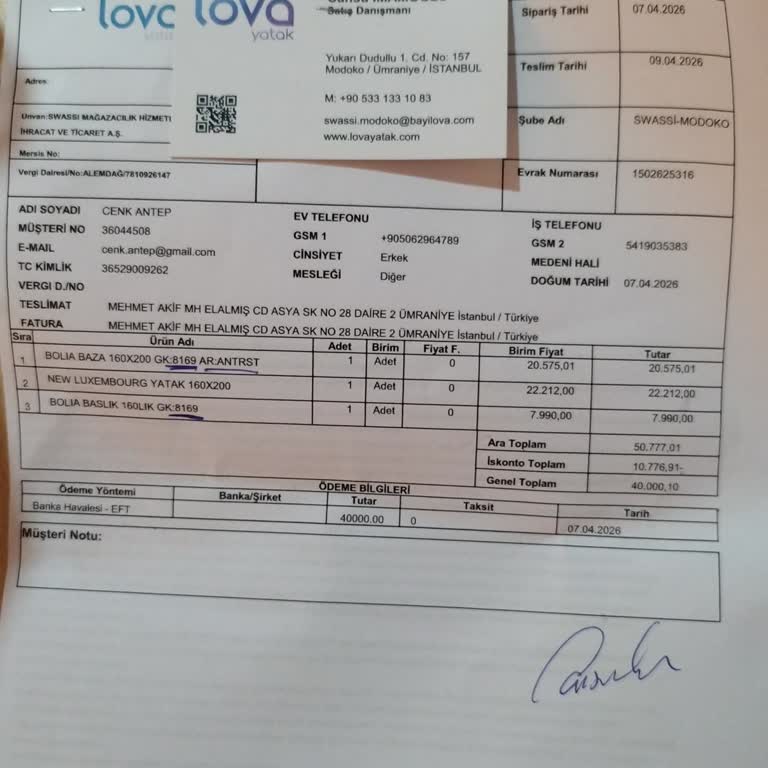 lova
lova
yatak
Satış Danışmanı
Yukarı Dudullu 1. Cd. No: 157
Modoko / Ümraniye / İSTANBUL
M: +90 533 131 10 83
swassi.modoko@bayilova.com
www.lovayatak.com
Sipariş Tarihi 07.04.2026
Teslim Tarihi 09.04.2026
Şube Adı SWASSİ-MODOKO
Evrak Numarası 1502625316
Adres:
Unvan:SWASSI MAĞAZACILIK HİZMETL
İHRACAT VE TİCARET A.Ş.
Mersis No:
Vergi Dairesi/No:ALEMDAĞ/7810926147
ADI SOYADI CENK ANTEP
MÜŞTERİ NO 36044508
E-MAIL cenk.antep@gmail.com
TC KİMLİK 36529009262
VERGI D./NO
EV TELEFONU
GSM 1 +905062964789
CİNSİYET Erkek
MESLEĞİ Diğer
İŞ TELEFONU
GSM 2 5419035383
MEDENİ HALİ
DOĞUM TARİHİ 07.04.2026
TESLİMAT MEHMET AKİF MH ELALMIŞ CD ASYA SK NO 28 DAİRE 2 ÜMRANİYE İstanbul / Türkiye
FATURA MEHMET AKİF MH ELALMIŞ CD ASYA SK NO 28 DAİRE 2 ÜMRANİYE İstanbul / Türkiye
Sıra Ürün Adı Adet Birim Fiyat F. Birim Fiyat Tutar
1 BOLIA BAZA 160X200 GK:8169 AR:ANTRST 1 Adet 0 20.575,01 20.575,01
2 NEW LUXEMBOURG YATAK 160X200 1 Adet 0 22.212,00 22.212,00
3 BOLIA BASLIK 160LIK GK:8169 1 Adet 0 7.990,00 7.990,00
Ara Toplam 50.777,01
İskonto Toplam 10.776,91-
Genel Toplam 40.000,10
ÖDEME BİLGİLERİ
Ödeme Yöntemi Banka/Şirket Tutar Taksit Tarih
Banka Havalesi - EFT 40000.00 0 07.04.2026
Müşteri Notu: